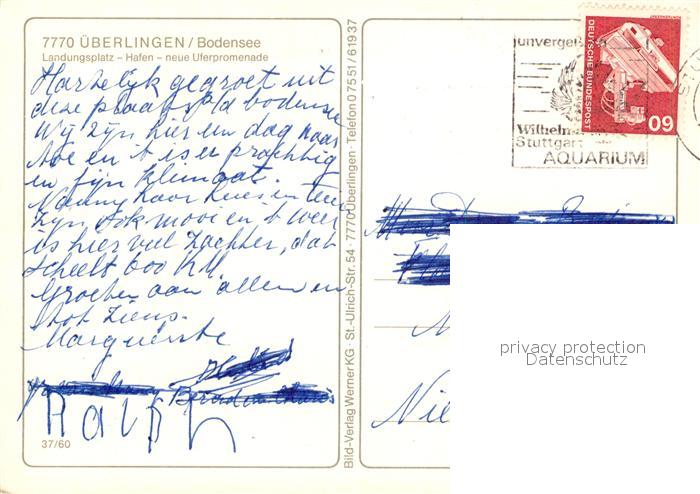 7770 ÜBERLINGEN / Bodensee
Landungsplatz – Hafen – neue Uferpromenade
Hartelijk gegroet uit
deze plaats a/d bodensee
Wij zijn hier een dag naar
toe en 't is er prachtig
en fijn klimaat.
zijn ook mooi en 't weer
is hier veel zachter, dat
scheelt 600 KM.
Groeten aan allen en
tot ziens.
Marguerite
Ralph
37/60
Bild-Verlag Werner KG · St.-Ulrich-Str. 54 · 7770 Überlingen · Telefon 0 75 51 / 6 19 37
unverge
Wilhelm
Stuttgart
AQUARIUM
DEUTSCHE BUNDESPOST
60
privacy protection
Datenschutz